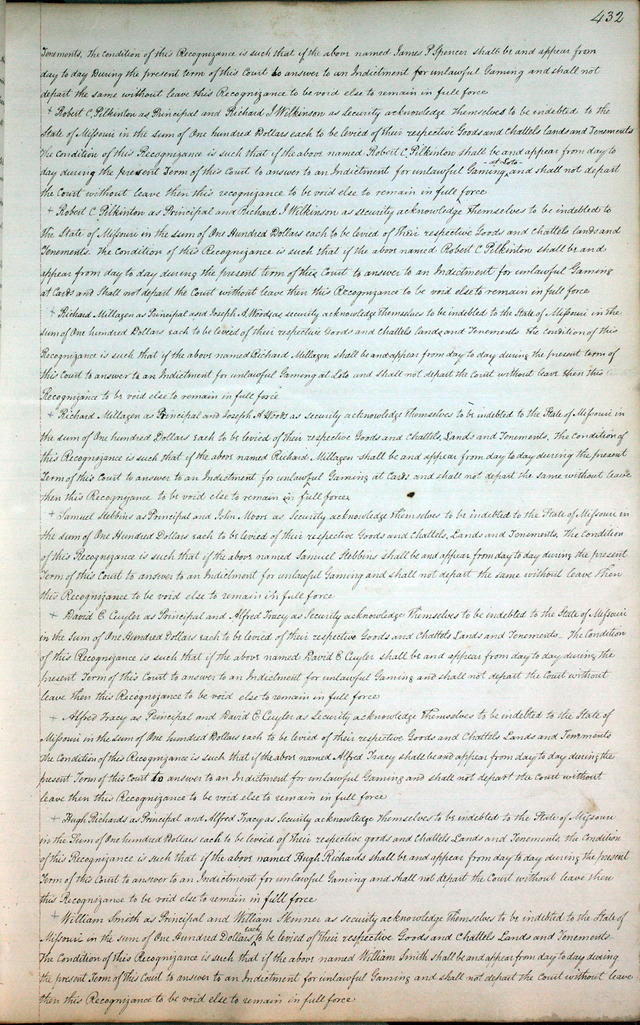 432
Tenements. The Condition of this Recognizance is such that if the above named James P. Spencer shall be and appear from
day to day During the present term of this Court to answer to an Indictment for unlawful Gaming and shall not
depart the same without leave this Recognizance to be void else to remain in full force
+ Robert C. Pilkinton as Principal and Richard J Wilkinson as security acknowledge Themselves to be indebted to the
State of Missouri in the sum of One hundred Dollars each to be levied of their respective Goods and Chattels lands and Tenements
The Condition of this Recognizance is such that if the above named Robert C. Pilkinton shall be and appear from day to
day during the present Term of this Court to answer to an Indictment for unlawful Gaming at Loto and shall not depart
the Court without leave then this recognizance to be void else to remain in full force
+ Robert C Pilkinton as Principal and Richard J Wilkinson as security acknowledge Themselves to be indebted to
the State of Missouri in the sum of One Hundred Dollars each to be levied of their respective Goods and Chattels lands and
Tenements. The Condition of this Recognizance is such that if the above named Robert C Pilkinton shall be and
appear from day to day during the present term of this Court to answer to an Indictment for unlawful Gaming
at Cards and Shall not depart the Court without leave then this Recognizance to be void else to remain in full force
+ Richard Millagen as Principal and Joseph A. Woods as security acknowledge Themselves to be indebted to the State of Missouri in the
sum of One hundred Dollars each to be levied of their respective Goods and Chattels lands and Tenements the Condition of this
Recognizance is such that if the above named Richard Millagen shall be and appear from day to day during the present term of
this Court to answer to an Indictment for unlawful Gaming at Loto and shall not depart the Court without leave then this
Recognizance to be void else to remain in full force
+ Richard Millagen as Principal and Joseph A Woods as Security acknowledge themselves to be indebted to the State of Missouri in
the sum of One hundred Dollars each to be levied of their respective Goods and Chattels, Lands and Tenements, The Condition of
this Recognizance is such that if the above named Richard Millagen shall be and appear from day to day during the present
Term of this Court to answer to an Indictment for unlawful Gaming at Cards and shall not depart the same without leave
then this Recognizance to be void else to remain in full force
+ Samuel Stebbins as Principal and John Moore as Security acknowledge Themselves to be indebted to the State of Missouri in
the sum of One Hundred Dollars each to be levied of their respective Goods and Chattels, Lands and Tenements, The Condition
of this Recognizance is such that if the above named Samuel Stebbins shall be and appear from day to day during the present
Term of this Court to answer to an Indictment for unlawful Gaming and shall not depart the same without leave Then
this Recognizance to be void else to remain in full force
+ David E Cuyler as Principal and Alfred Tracy as Security acknowledge Themselves to be indebted to the State of Missouri
in the Sum of One Hundred Dollars each to be levied of their respective Goods and Chattels Lands and Tenements. The Condition
of this Recognizance is such that if the above named David E Cuyler shall be and appear from day to day during the
present Term of this Court to answer to an Indictment for unlawful Gaming and shall not depart the Court without
leave then this Recognizance to be void else to remain in full force
+ Alfred Tracy as Principal and David E Cuyler as Security acknowledge Themselves to be indebted to the State of
Missouri in the sum of One hundred Dollars each to be levied of their respective Goods and Chattels Lands and Tenements
The Condition of this Recognizance is such that if the above named Alfred Tracy shall be and appear from day to day during the
present Term of this Court to answer to an Indictment for unlawful Gaming and shall not depart the Court without
leave then this Recognizance to be void else to remain in full force
+ Hugh Richards as Principal and Alfred Tracy as Security acknowledge Themselves to be indebted to the State of Missouri
in the Sum of One hundred Dollars each to be levied of their respective goods and Chattels Lands and Tenements, the Condition
of this Recognizance is such that if the above named Hugh Richards shall be and appear from day to day during the present
Term of this Court to answer to an Indictment for unlawful Gaming and shall not depart the Court without leave then
this Recognizance to be void else to remain in full force
+ William Smith as Principal and William Skinner as security acknowledge Themselves to be indebted to the State of
Missouri in the sum of One Hundred Dollars each to be levied of their respective Goods and Chattels Lands and Tenements
The Condition of this Recognizance is such that if the above named William Smith shall be and appear from day to day during
the present Term of this Court to answer to an Indictment for unlawful Gaming and shall not depart the Court without leave
then this Recognizance to be void else to remain in full force